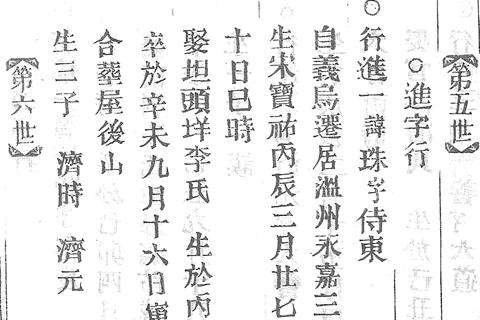 【第五世】
○進字行
○行進一諱珠字侍東
自義烏遷居溫州永嘉三
生宋寶祐丙辰三月廿七
十日巳時
娶坦頭垟李氏 生於丙
卒於辛未九月十六日寅
合塟屋後山
生三子 濟時 濟元
【第六世】